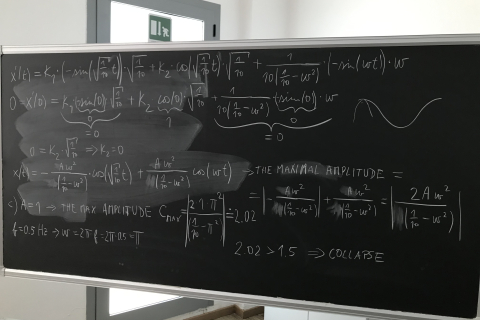 x'(t) = K₁·(-sin(√(1/10) t)·√(1/10) + K₂·cos(√(1/10) t)·√(1/10) + 1/(10(1/10-w²))·(-sin(wt))·w
0 = x'(0) = K₁(sin(0))·√(1/10) + K₂ cos(0)·√(1/10) + 1/(10(1/10-w²))·(sin(0))·w
0 1 0
= 0 = 0
0 = K₂·√(1/10) ⇒ K₂ = 0
x(t) = - Aw²/(1/10-w²)·cos(√(1/10) t) + Aw²/(1/10-w²) cos(wt) → THE MAXIMAL AMPLITUDE =
= |-Aw²/(1/10-w²)| + |Aw²/(1/10-w²)| = |2Aw²/(1/10-w²)|
c) A=1 → THE MAX AMPLITUDE Cmax = |2·1·π²/(1/10-π²)| ≐ 2.02
f=0.5 Hz ⇒ w = 2πf = 2π·0.5 = π
2.02 > 1.5 ⇒ COLLAPSE